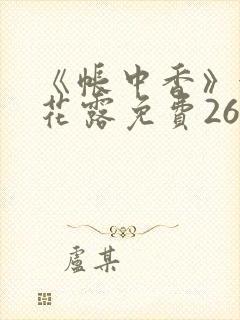 《帳中香》
花露免費26
盧某